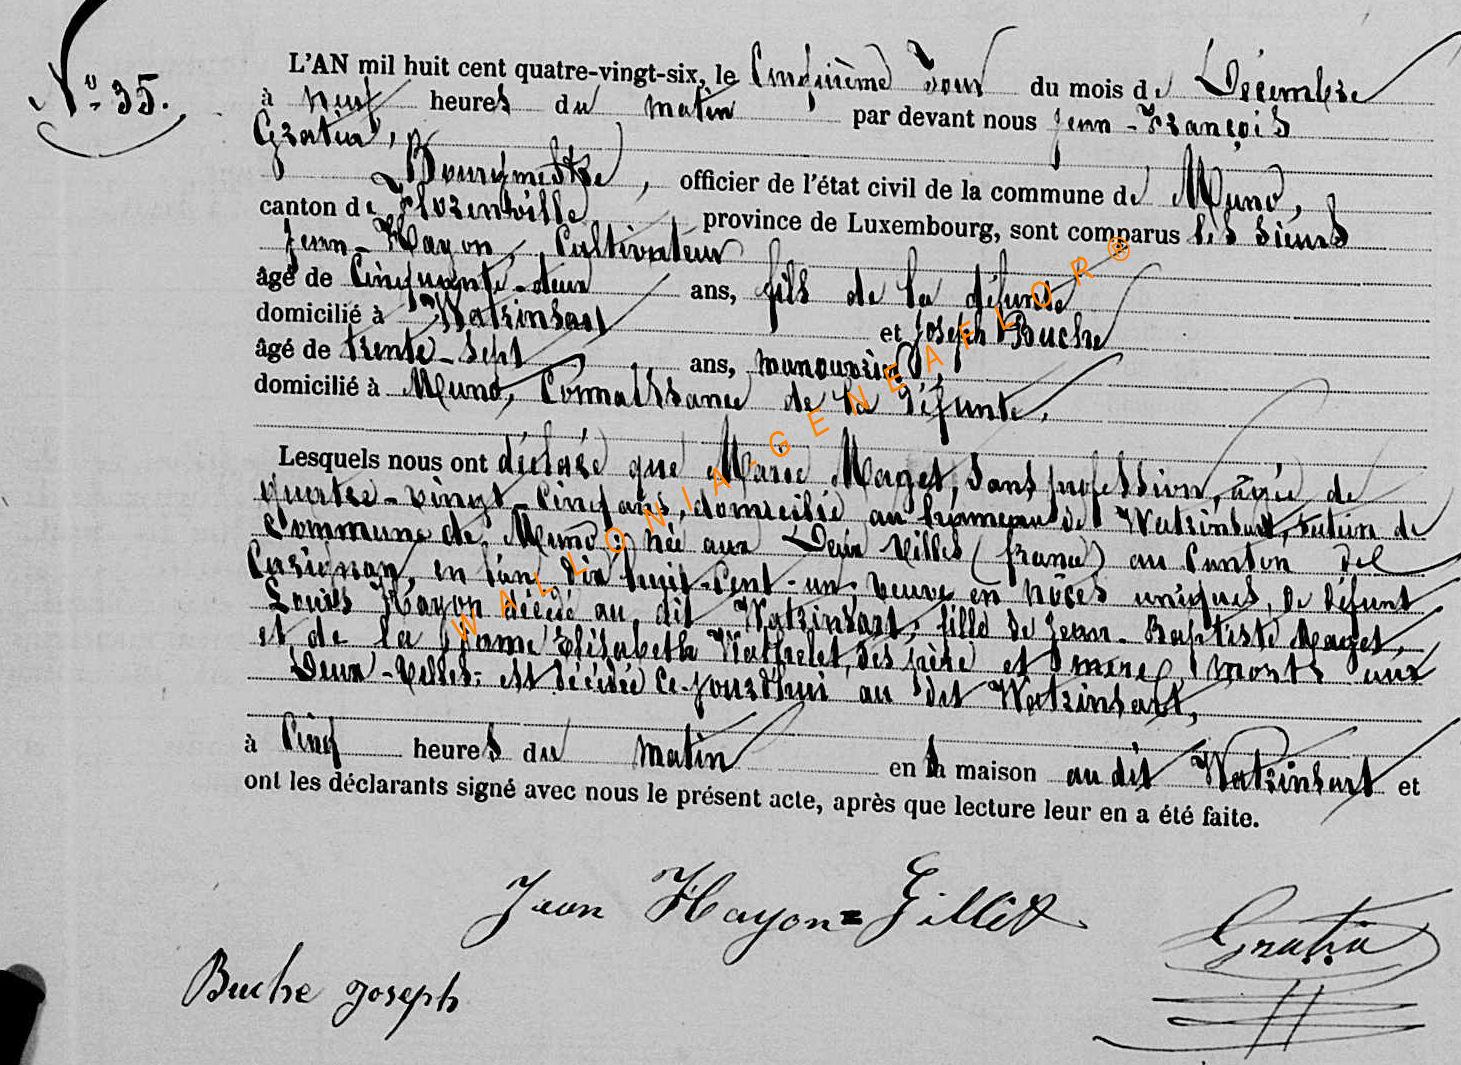 N° 35.
L'AN mil huit cent quatre-vingt-six, le Cinquième Jour du mois de Décembre
à neuf heures du matin par devant nous Jean-François
Gratia,
Bourgmestre, officier de l'état civil de la commune de Muno,
canton de Florenville province de Luxembourg, sont comparus les sieurs
Jean-Hayon, Cultivateur
âgé de Cinquante-deux ans, fils de la défunte
domicilié à Watrinsart et Joseph Buche
âgé de trente-sept ans, manouvrier,
domicilié à Muno, Connaissance de la défunte.
Lesquels nous ont déclaré que Marie Maget, Sans profession, âgée de
quatre-vingt-cinq ans, domicilié au hameau de Watrinsart, section de
Commune de Muno; née aux Deux Villes (france) au Canton de
Carignan, en l'an dix huit-Cent-un; veuve en nôces uniques, de défunt
Louis Hayon décédé au dit Watrinsart; fille de Jean-Baptiste Maget,
et de la Dame Elisabeth Watrelet, des père et mère, morts aux
Deux-Villes; est décédée ce-jourd'hui au dit Watrinsart,
à Cinq heures du matin en sa maison au dit Watrinsart et
ont les déclarants signé avec nous le présent acte, après que lecture leur en a été faite.
Jean Hayon=Gillet
Gratia
Buche Joseph
WALLONIA-GENEAFLOR®